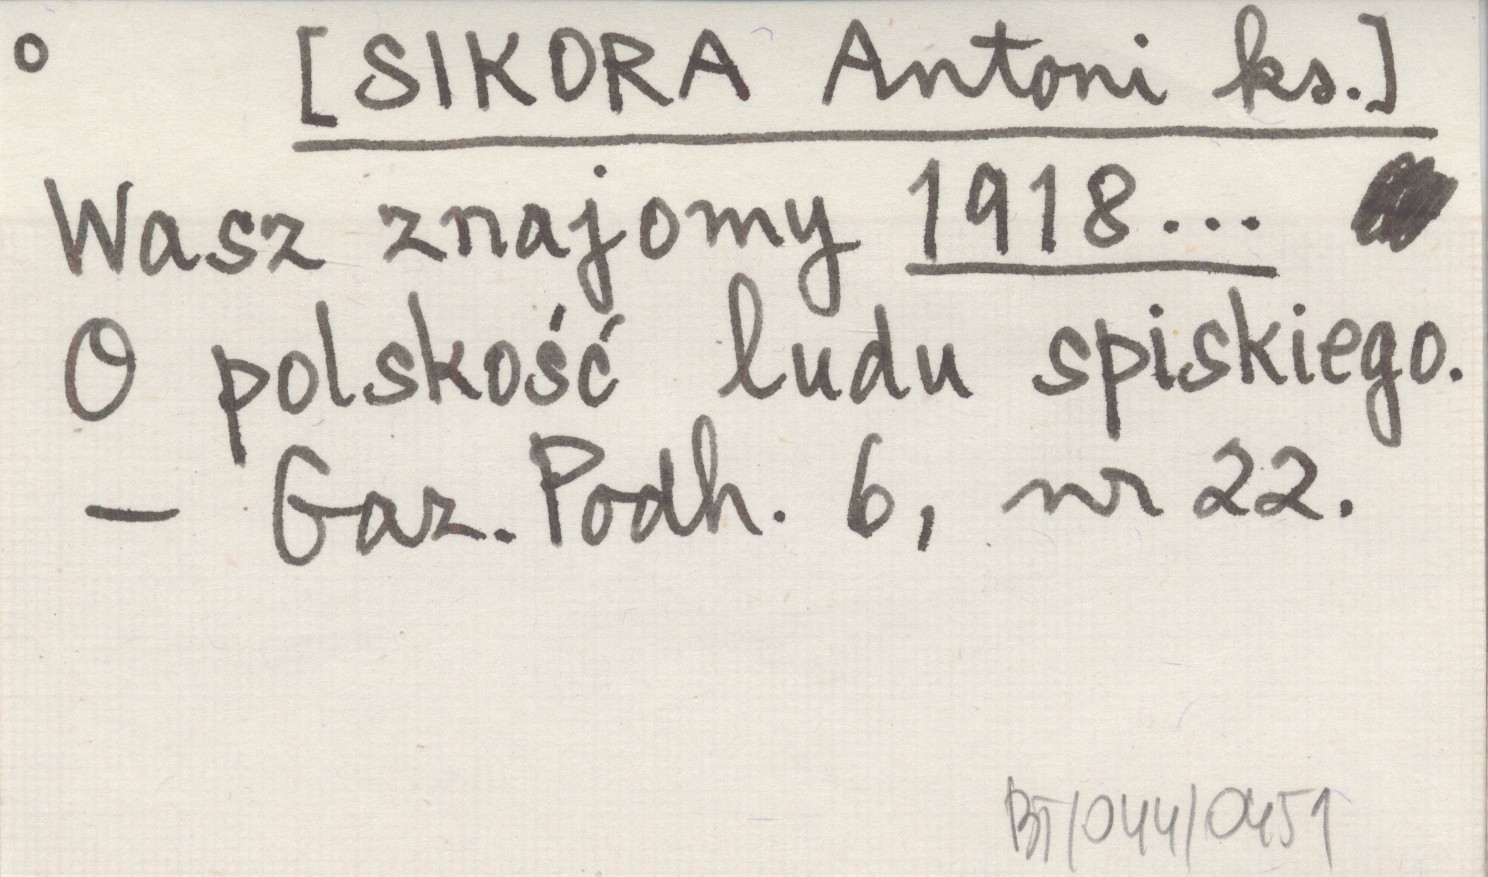 ° [SIKORA Antoni ks.]
Wasz znajomy 1918...
O polskość ludu spiskiego.
— Gaz. Podh. 6, nr 22.
BT/044/0451